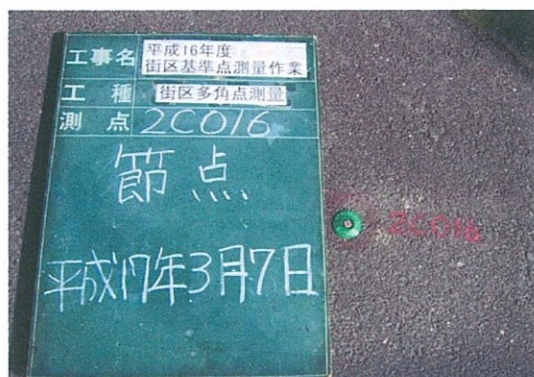 工事名
平成16年度
街区基準点測量作業
工種 街区多角点測量
測点 2C016
節点
平成17年3月7日
2C016